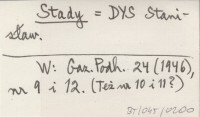 Stady = DYS Stani-
sław.
W: Gaz. Podh. 24 (1946),
nr 9 i 12. (Też na 10 i 11?)